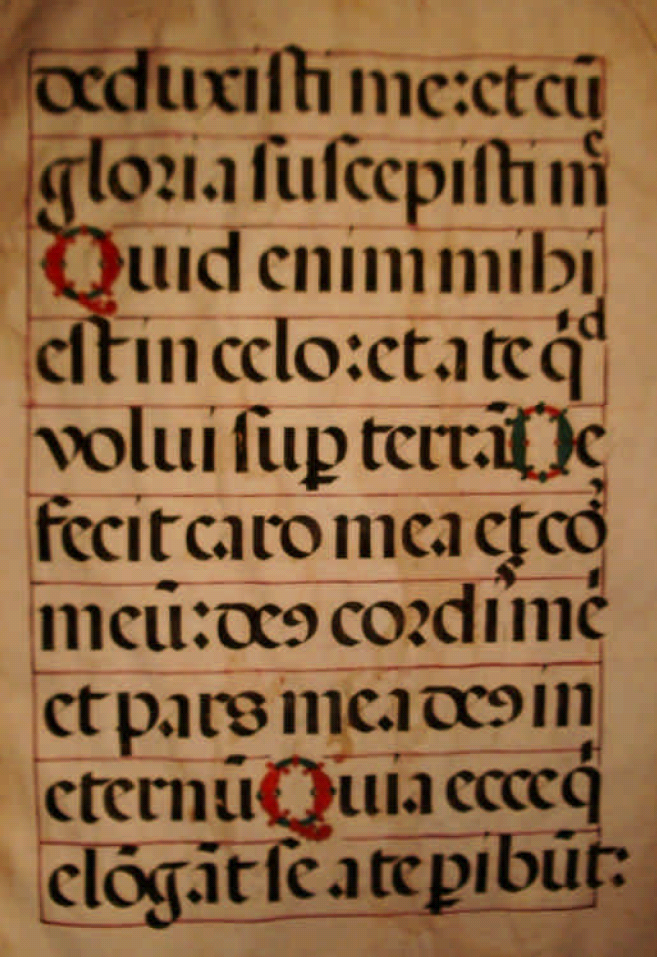 deduxiſti me: et cū
gloria ſuſcepiſti mͨ
Quid enim mihi
eſt in celo: et a te qͥͩ
volui ſuꝑ terrā De
fecit caro mea et coͬ
meū: deꝰ cordiͥˢ meͥ
et pars mea deꝰ in
eternū Quia ecce qͥ
elōgāt ſe a te ꝑibūt: